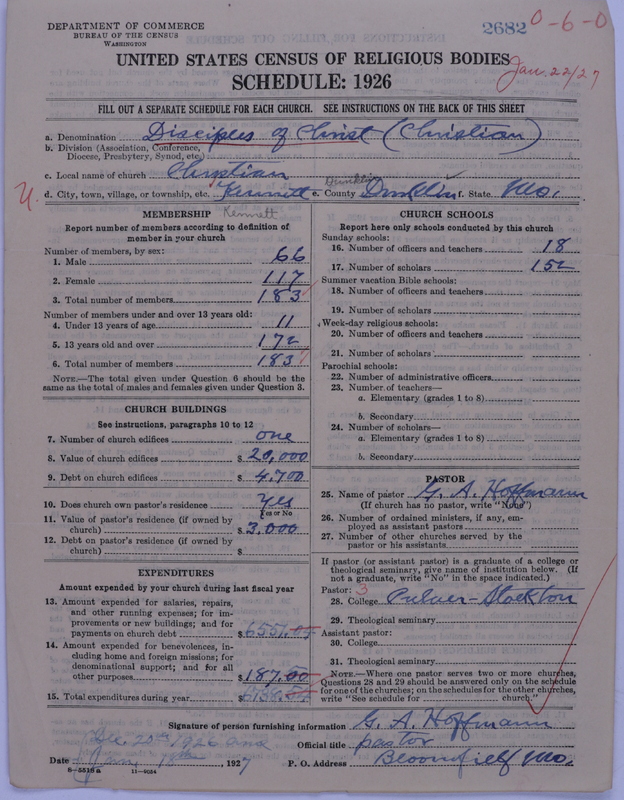 DEPARTMENT OF COMMERCE
BUREAU OF THE CENSUS
WASHINGTON
2682 0-6-0
Jan. 22/27
UNITED STATES CENSUS OF RELIGIOUS BODIES
SCHEDULE: 1926
FILL OUT A SEPARATE SCHEDULE FOR EACH CHURCH. SEE INSTRUCTIONS ON THE BACK OF THIS SHEET
a. Denomination Disciples of Christ (Christian)
b. Division (Association, Conference,
Diocese, Presbytery, Synod, etc.)
c. Local name of church Christian
Dunklin
d. City, town, village, or township, etc. Kennett e. County Dunklin f. State Mo.
Kennett
MEMBERSHIP
Report number of members according to definition of
member in your church
Number of members, by sex:
1. Male 66
2. Female 117
3. Total number of members 183
Number of members under and over 13 years old:
4. Under 13 years of age 11
5. 13 years old and over 172
6. Total number of members 183
NOTE.—The total given under Question 6 should be the
same as the total of males and females given under Question 3.
CHURCH BUILDINGS
See instructions, paragraphs 10 to 12
7. Number of church edifices one
8. Value of church edifices $ 20,000
9. Debt on church edifices $ 4,700
10. Does church own pastor's residence Yes
Yes or No
11. Value of pastor's residence (if owned by
church) $ 3,000
12. Debt on pastor's residence (if owned by
church) $
EXPENDITURES
Amount expended by your church during last fiscal year
13. Amount expended for salaries, repairs,
and other running expenses; for im-
provements or new buildings; and for
payments on church debt $
14. Amount expended for benevolences, in-
cluding home and foreign missions; for
denominational support; and for all
other purposes $ 187.50
15. Total expenditures during year $
CHURCH SCHOOLS
Report here only schools conducted by this church
Sunday schools:
16. Number of officers and teachers 18
17. Number of scholars 152
Summer vacation Bible schools:
18. Number of officers and teachers
19. Number of scholars
Week-day religious schools:
20. Number of officers and teachers
21. Number of scholars
Parochial schools:
22. Number of administrative officers
23. Number of teachers—
a. Elementary (grades 1 to 8)
b. Secondary
24. Number of scholars—
a. Elementary (grades 1 to 8)
b. Secondary
PASTOR
25. Name of pastor G. A. Hoffmann
(If church has no pastor, write "None")
26. Number of ordained ministers, if any, em-
ployed as assistant pastors
27. Number of other churches served by the
pastor or his assistants
If pastor (or assistant pastor) is a graduate of a college or
theological seminary, give name of institution below. (If
not a graduate, write "No" in the space indicated.)
Pastor: 3
28. College Culver-Stockton
29. Theological seminary
Assistant pastor:
30. College
31. Theological seminary
NOTE.—Where one pastor serves two or more churches,
Questions 28 and 29 should be answered only on the schedule
for one of the churches; on the schedules for the other churches,
write "See schedule for church."
Signature of person furnishing information G. A. Hoffmann
Dec 20th 1926 and
Official title pastor
Date Jan, 1927
P. O. Address Bloomfield Mo.
8—5518a 11—9034